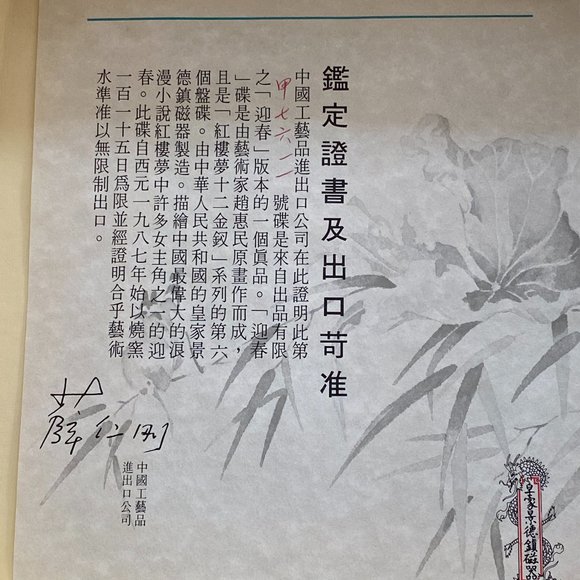 鑑定證書及出口苛准
中國工藝品進出口公司在此證明此第
甲七六一一號碟是來自出品有限
之「迎春」版本的一個真品。「迎春
」碟是由藝術家趙惠民原畫作而成，
且是「紅樓夢十二金釵」系列的第六
個盤碟。由中華人民共和國的皇家景
德鎮磁器製造。描繪中國最偉大的浪
漫小說紅樓夢中許多女主角之一的迎
春。此碟自西元一九八七年始以燒窯
一百一十五日為限並經證明合乎藝術
水準准以無限制出口。
中國工藝品
進出口公司
皇家景德鎮磁器